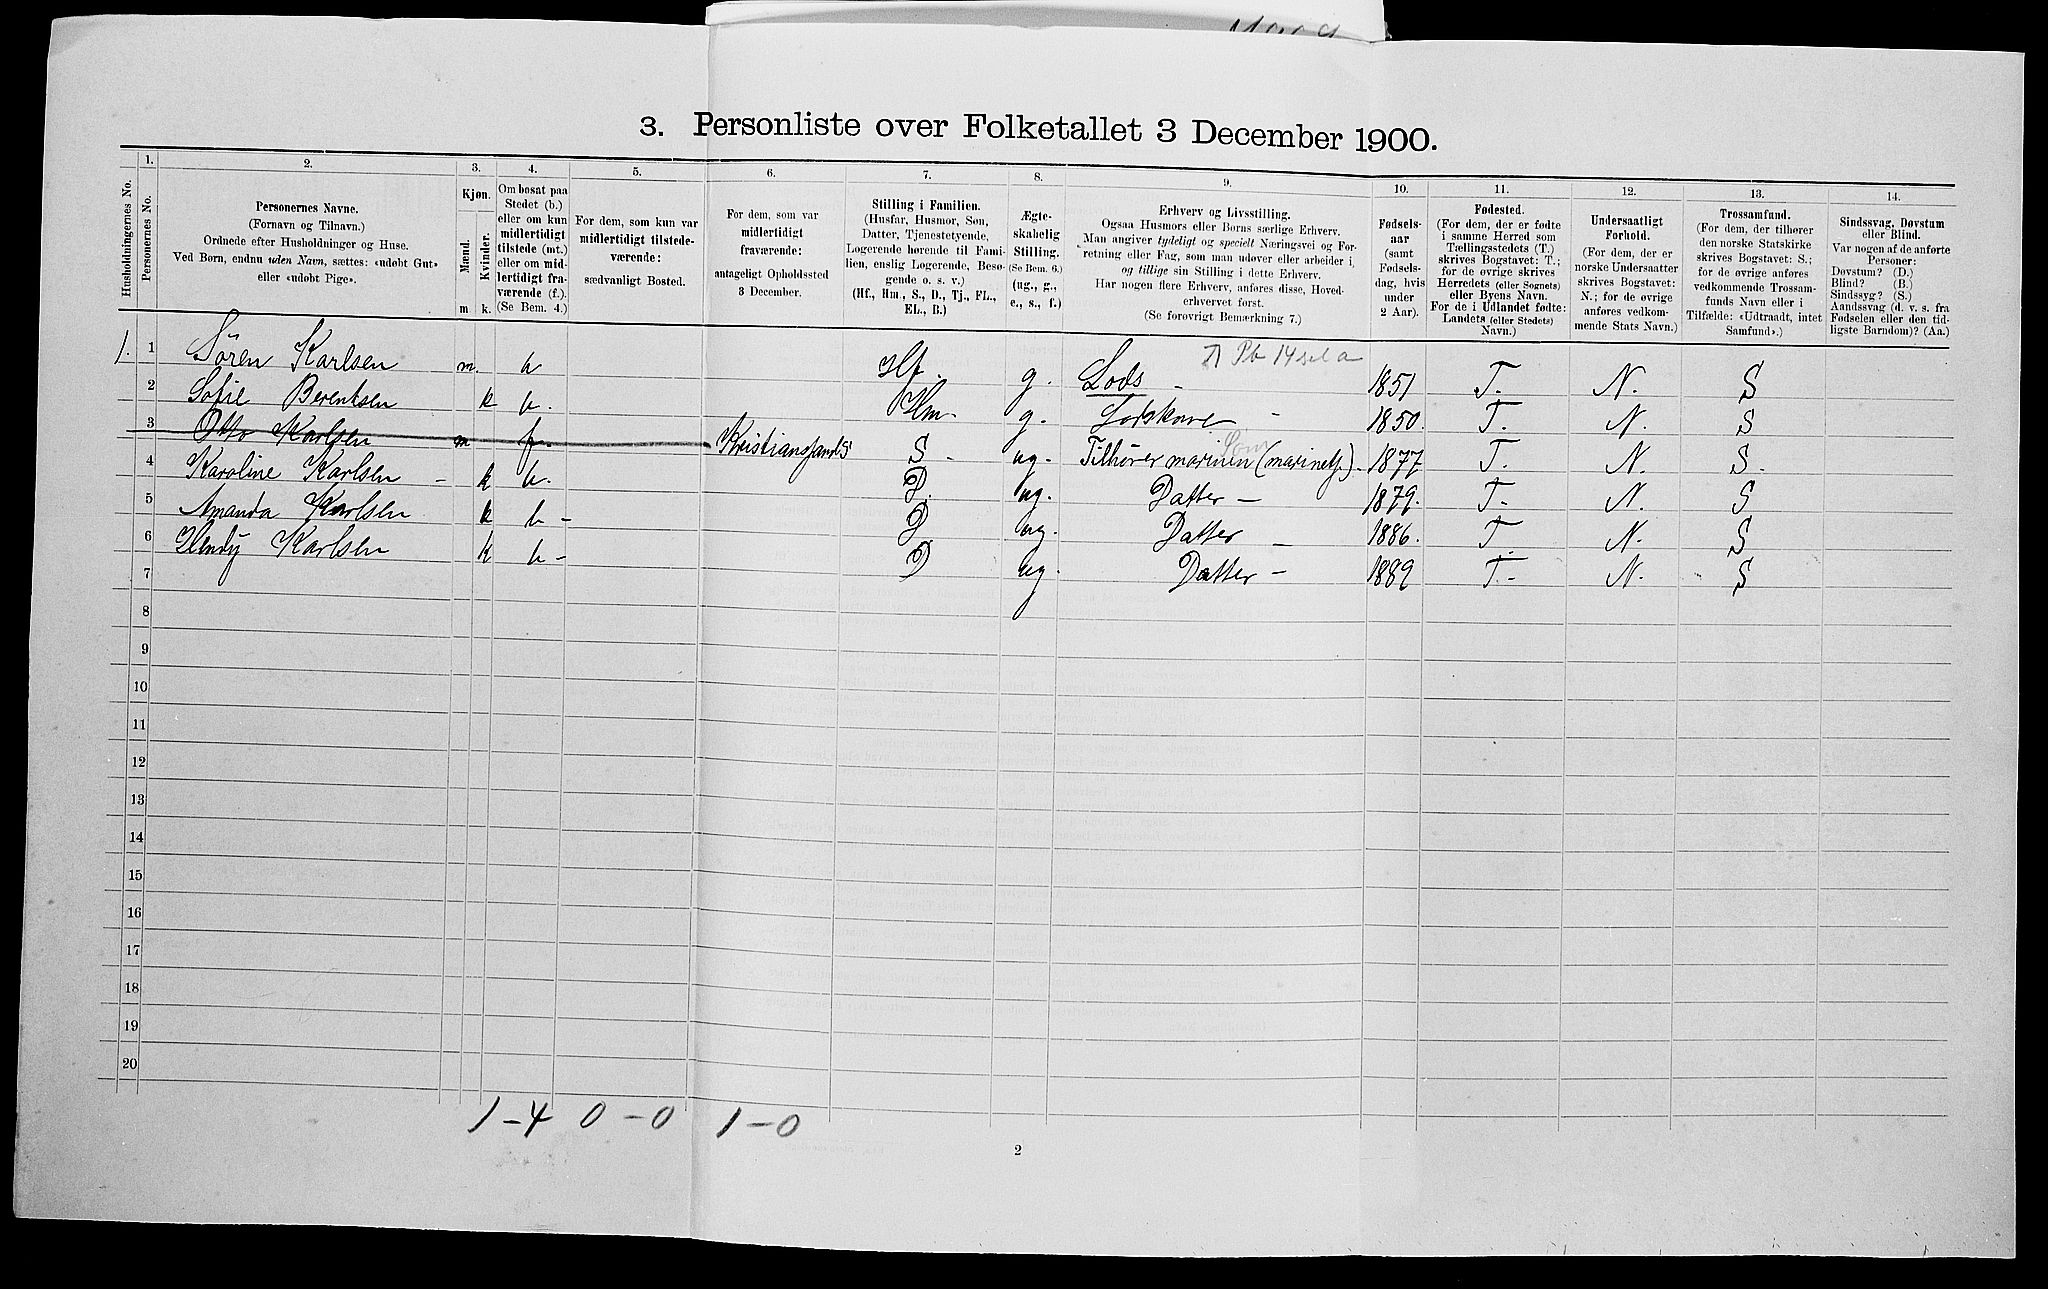 3. Personliste over Folketallet 3 December 1900.
1. 2. 3. 4. 5. 6. 7. 8. 9. 10. 11. 12. 13. 14.
Husholdningernes No.
Personernes No.
Personernes Navne.
(Fornavn og Tilnavn.)
Ordnede efter Husholdninger og Huse.
Ved Børn, endnu uden Navn, sættes: «udøbt Gut»
eller «udøbt Pige».
Kjøn.
Mænd.
Kvinder.
m k.
Om bosat paa
Stedet (b.)
eller om kun
midlertidigt
tilstede (mt.)
eller om mid-
lertidigt fra-
værende (f.).
(Se Bem. 4.)
For dem, som kun var
midlertidigt tilstede-
værende:
sædvanligt Bosted.
For dem, som var
midlertidigt
fraværende:
antageligt Opholdssted
3 December.
Stilling i Familien.
(Husfar, Husmor, Søn,
Datter, Tjenestetyende,
Logerende hørende til Fami-
lien, enslig Logerende, Besø-
gende o. s. v.)
(Hf., Hm., S., D., Tj., FL.,
EL., B.)
Ægte-
skabelig
Stilling.
(Se Bem. 6.)
(ug., g.,
e., s., f.)
Erhverv og Livsstilling.
Ogsaa Husmors eller Børns særlige Erhverv.
Man angiver tydeligt og specielt Næringsvei og For-
retning eller Fag, som man udøver eller arbeider i,
og tillige sin Stilling i dette Erhverv.
Har nogen flere Erhverv, anføres disse, Hoved-
erhvervet først.
(Se forøvrigt Bemærkning 7.)
Fødsels-
aar
(samt
Fødsels-
dag, hvis
under
2 Aar).
Fødested.
(For dem, der er fødte
i samme Herred som
Tællingsstedets (T.)
skrives Bogstavet: T.;
for de øvrige skrives
Herredets (eller Sognets)
eller Byens Navn.
For de i Udlandet fødte:
Landets (eller Stedets)
Navn.)
Undersaatligt
Forhold.
(For dem, der er
norske Undersaatter
skrives Bogstavet:
N.; for de øvrige
anføres vedkom-
mende Stats Navn.)
Trossamfund.
(For dem, der tilhører
den norske Statskirke
skrives Bogstavet: S.;
for de øvrige anføres
vedkommende Trossam-
funds Navn eller i
Tilfælde: «Udtraadt, intet
Samfund».)
Sindssvag, Døvstum
eller Blind.
Var nogen af de anførte
Personer:
Døvstum? (D.)
Blind? (B.)
Sindssyg? (S.)
Aandssvag (d. v. s. fra
Fødselen eller den tid-
ligste Barndom)? (Aa.)
1. 1 Sören Karlsen m. b Hf. g. Lods - 1851 T. N. S
2 Sofie Berentsen k b. Hm. g. Lodskone - 1850. T. N. S
3 Otto Karlsen m f. Kristianssand S S - ug. Tilhører marinen (marinetj.). 1877 T. N. S.
4 Karoline Karlsen - k b. D. ug. Datter - 1879. T. N. S
5 Amanda Karlsen k b - D ug. Datter - 1886. T. N. S
6 Hendy Karlsen k b - D ug. Datter - 1889 T. - N. S
7
8
9
10
11
12
13
14
15
16
17
18
19
20
1 - 4 0 - 0 1 - 0
2